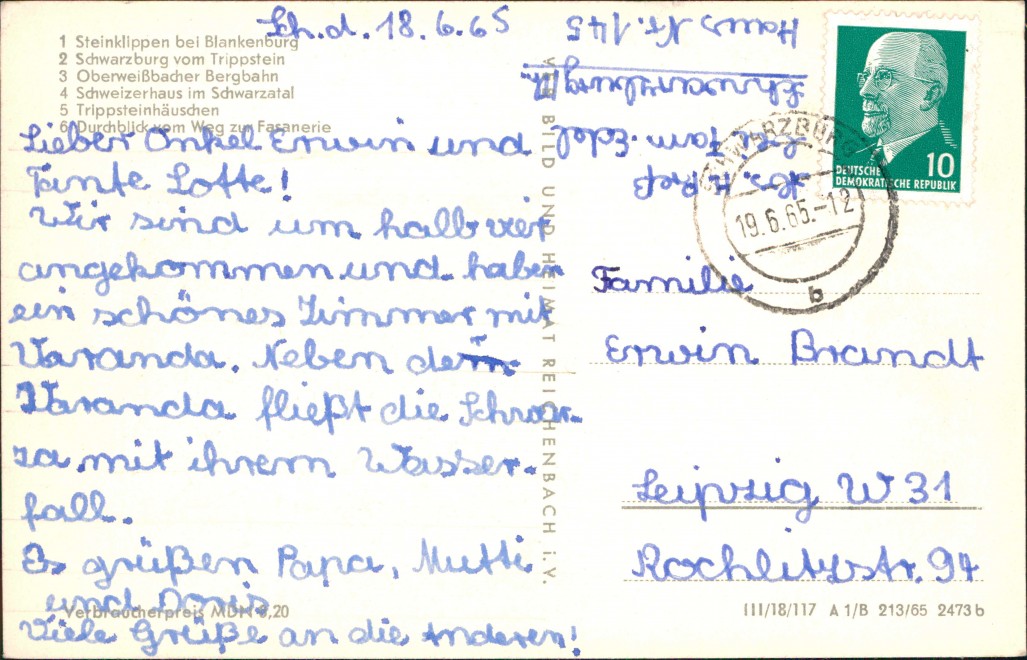 Sch.d. 18.6.65
1 Steinklippen bei Blankenburg
2 Schwarzburg vom Trippstein
3 Oberweißbacher Bergbahn
4 Schweizerhaus im Schwarzatal
5 Trippsteinhäuschen
6 Durchblick vom Weg zur Fasanerie
Lieber Onkel Erwin und
Tante Lotte!
Wir sind um halb vier
angekommen und haben
ein schönes Zimmer mit
Varanda. Neben der
Varanda fließt die Schwar-
za mit ihrem Wasser-
fall.
Es grüßen Papa, Mutti
und Doris
Viele Grüße an die anderen!
Verbraucherpreis MDN 0,20
VER BILD UND HEIMAT REICHENBACH i.V.
Abs. H.
bei Fam. Edel
Schwarzburg Th.
Haus Nr. 145
DEUTSCHE
DEMOKRATISCHE REPUBLIK
10
SCHWARZBURG
19.6.65.-12
b
Familie
Erwin Brandt
Leipzig W 31
Rochlitzstr. 94
III/18/117 A 1/B 213/65 2473 b